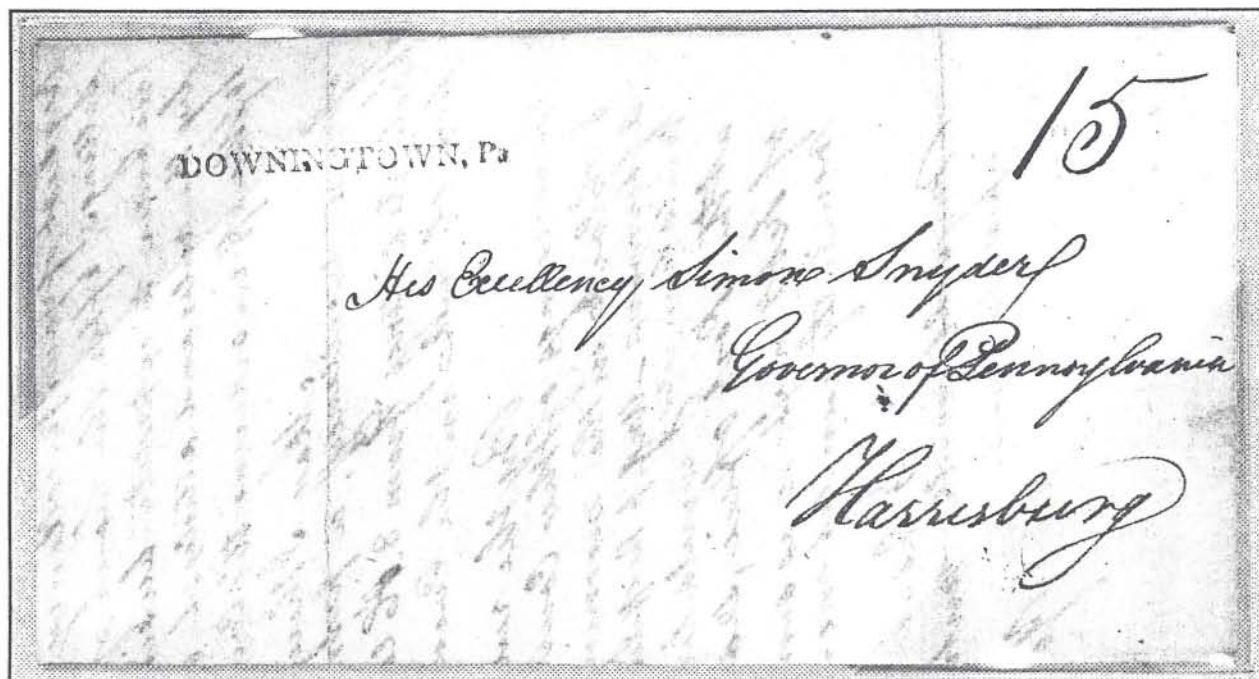 15
DOWNINGTOWN, Pa
His Excellency Simon Snyder
Governor of Pennsylvania
Harrisburg